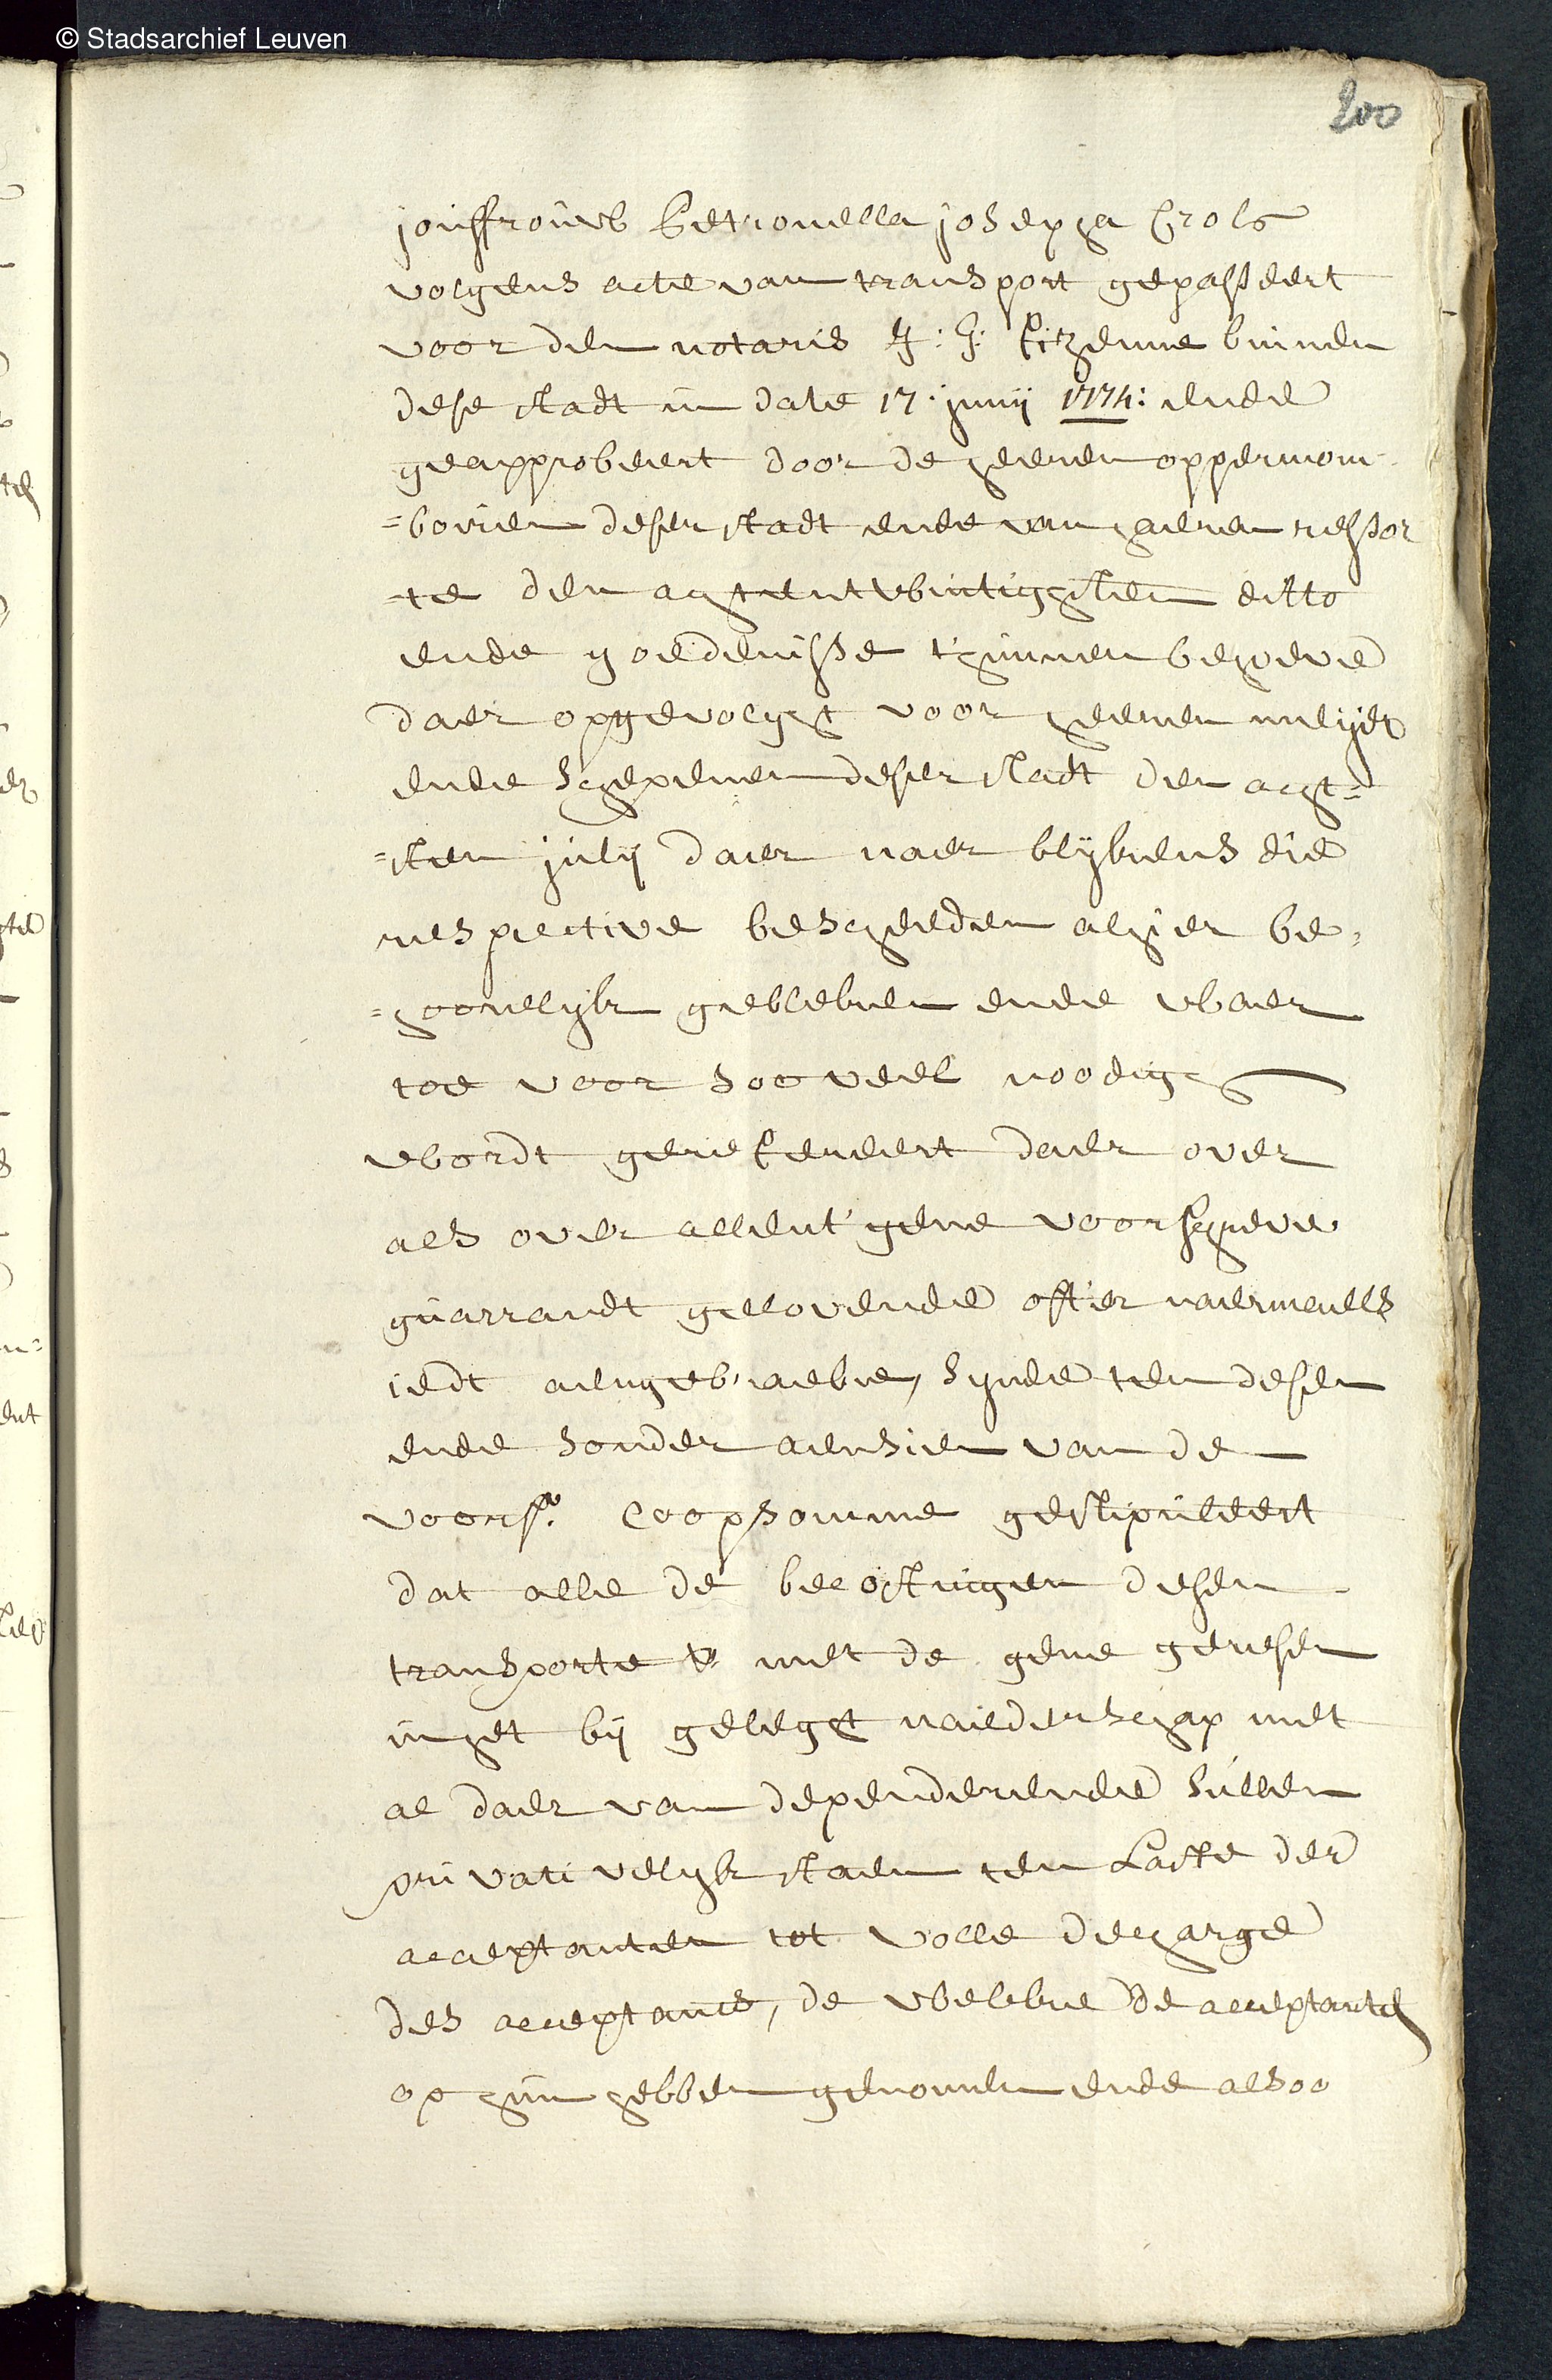 © Stadsarchief Leuven
200
jouffrouw Petronella josepha Crols
volgens acte van transport gepasseert
voor den notaris binnen
dese stadt in date 17: junij 1774: ende
geapprobeert door de heeren oppermom-
=boiren deser stadt ende van haeren ressor
=te den aghtentwintighsten ditto
ende goedenisse t'hunnen behoeve
daer opgevolght voor heeren meijer
ende schepenen deser stadt den aght=
=sten julij daer naer blijkens die
respective bescheeden alhier be=
=hoorelijk gebleken ende waer
toe voor soo veel noodigh
wordt gerefereert daer over
als over allent'gene voorschreve
guarrandt gelovende ofter naermaels
iedt aengebraeke, synde ten desen
ende sonder aensien van de
voors. coopsomme gestipuleert
dat alle de becostingen desen
transporte met de gene geresen
in het bij geleght naederschap met
al daer van dependerende sullen
privativelijk staen ten Laste der
acceptanten tot volle decharge
des acceptants, de welke de acceptanten
op hun hebben genomen ende alsoo